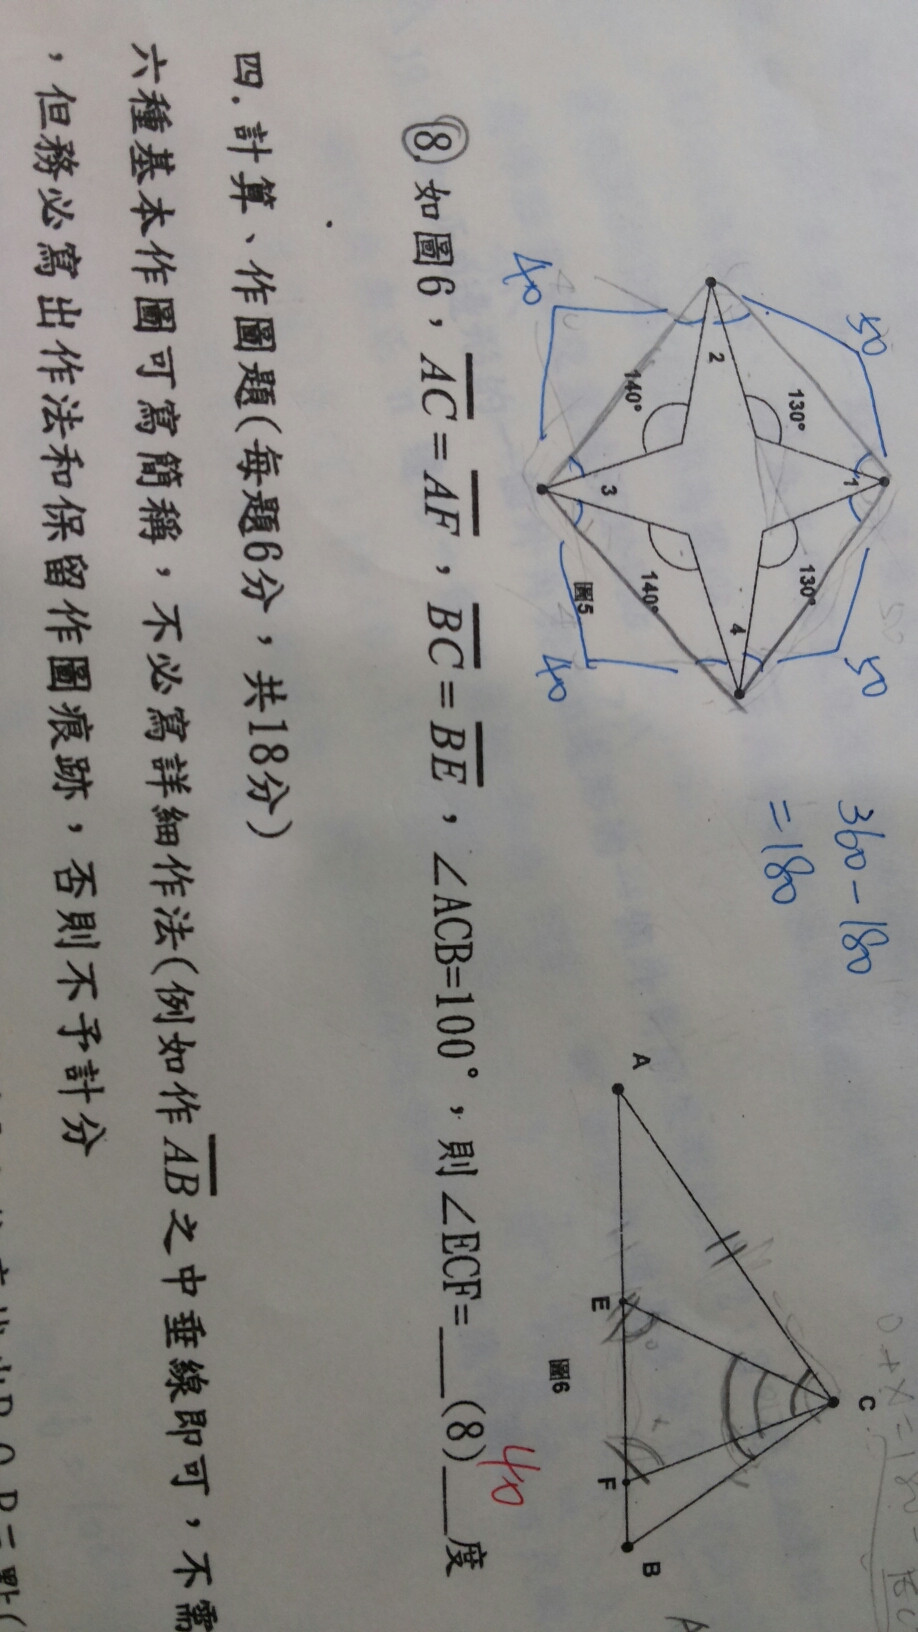 50
130°
1
130°
50
2
4
140°
3
140°
40
40
圖5
360-180
=180
C
A
E
F
B
圖6
40
⑧.如圖6，AC=AF，BC=BE，∠ACB=100°，則∠ECF=__(8)__度
四.計算、作圖題(每題6分，共18分)
六種基本作圖可寫簡稱，不必寫詳細作法(例如作AB之中垂線即可，不需
，但務必寫出作法和保留作圖痕跡，否則不予計分